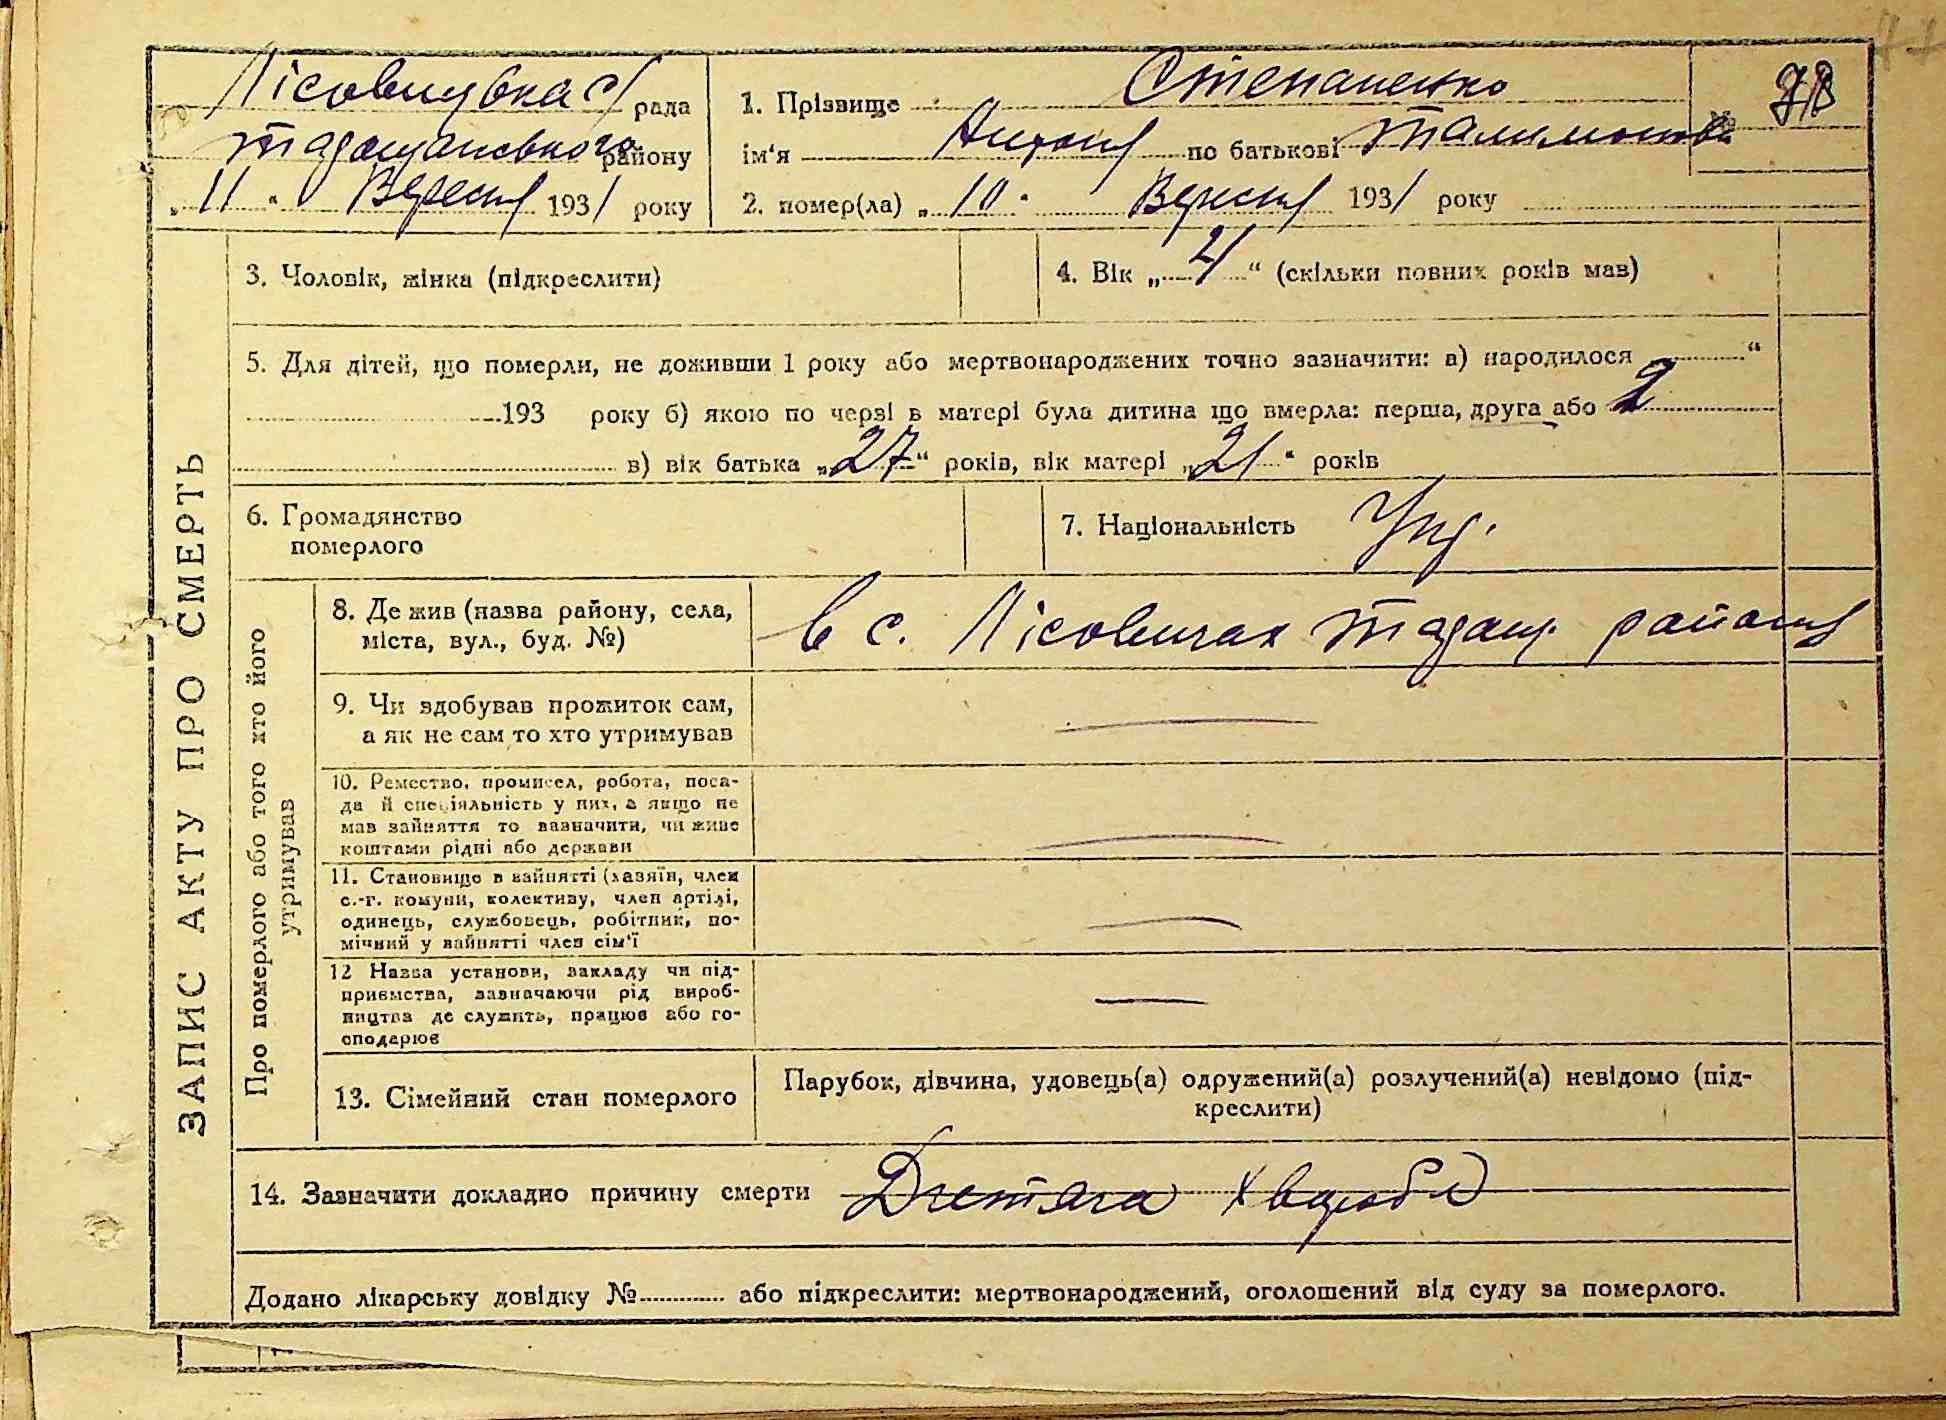 Лісовицька с/рада
Таращанського району
„11“ Вересня 1931 року
1. Прізвище Степаненко
ім'я по батькові
2. помер(ла) „10“ Вересня 1931 року
№ 78
ЗАПИС АКТУ ПРО СМЕРТЬ
3. Чоловік, жінка (підкреслити)
4. Вік „ “ (скільки повних років мав)
5. Для дітей, що померли, не доживши 1 року або мертвонароджених точно зазначити: а) народилося “
193 року б) якою по черзі в матері була дитина що вмерла: перша, друга або 2
в) вік батька „27“ років, вік матері „21“ років
6. Громадянство
померлого
7. Національність Укр.
Про померлого або того хто його
утримував
8. Де жив (назва району, села,
міста, вул., буд. №)
в с. Лісовичах Таращ. району
9. Чи здобував прожиток сам,
а як не сам то хто утримував
10. Ремество, промисел, робота, поса-
да й спеціяльність у них, а якщо не
мав зайняття то вазначити, чи живе
коштами рідні або держави
11. Становище в вайнятті (хазяїн, член
с.-г. комуни, колективу, член артілі,
одинець, службовець, робітник, по-
мічний у вайнятті член сім'ї
12 Назва установи, закладу чи під-
приємства, зазначаючи рід вироб-
ництва де служить, працює або го-
сподарює
13. Сімейний стан померлого
Парубок, дівчина, удовець(а) одружений(а) розлучений(а) невідомо (під-
креслити)
14. Зазначити докладно причину смерти Дитяча хвороба
Додано лікарську довідку № або підкреслити: мертвонароджений, оголошений від суду за померлого.